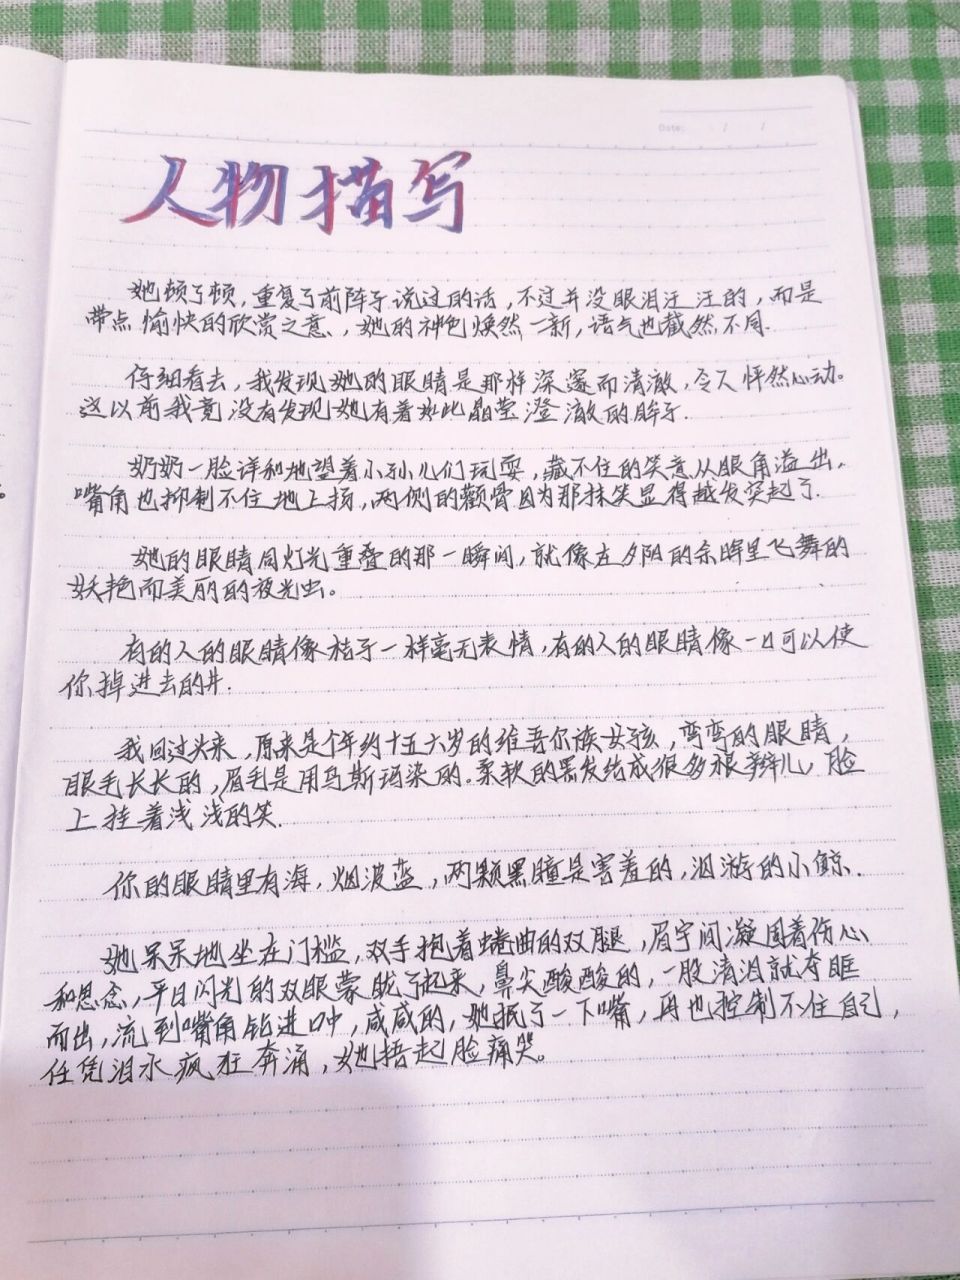 Date: / /
人物描写
她顿了顿，重复了前阵子说过的话，不过并没眼泪汪汪的，而是
带点愉快的欣赏之意、，她的神色焕然一新，语气也截然不同.
仔细看去，我发现她的眼睛是那样深邃而清澈，令人怦然心动。
这以前我竟没有发现她有着如此晶莹澄澈的眸子.
奶奶一脸详和地望着小孙儿们玩耍，藏不住的笑意从眼角溢出，
嘴角也抑制不住地上扬，两侧的颧骨因为那抹笑显得越发突起了.
她的眼睛同灯光重叠的那一瞬间，就像在夕阴的余晖里飞舞的
妖艳而美丽的夜光虫。
有的人的眼睛像桔子一样毫无表情，有的人的眼睛像一口可以使
你掉进去的井.
我回过头来，原来是个年约十五六岁的维吾尔族女孩，弯弯的眼睛，
眼毛长长的，眉毛是用乌斯玛染的.柔软的黑发结成很多根辫儿，脸
上挂着浅浅的笑.
你的眼睛里有海，烟波蓝，两颗黑瞳是害羞的，泅游的小鲸.
她呆呆地坐在门槛，双手抱着蜷曲的双腿，眉宇间凝固着伤心
和思念，平日闪光的双眼蒙胧了起来，鼻尖酸酸的，一股清泪就夺眶
而出，流到嘴角钻进口中，咸咸的，她抿了一下嘴，再也控制不住自己，
任凭泪水疯狂奔涌，她捂起脸痛哭。